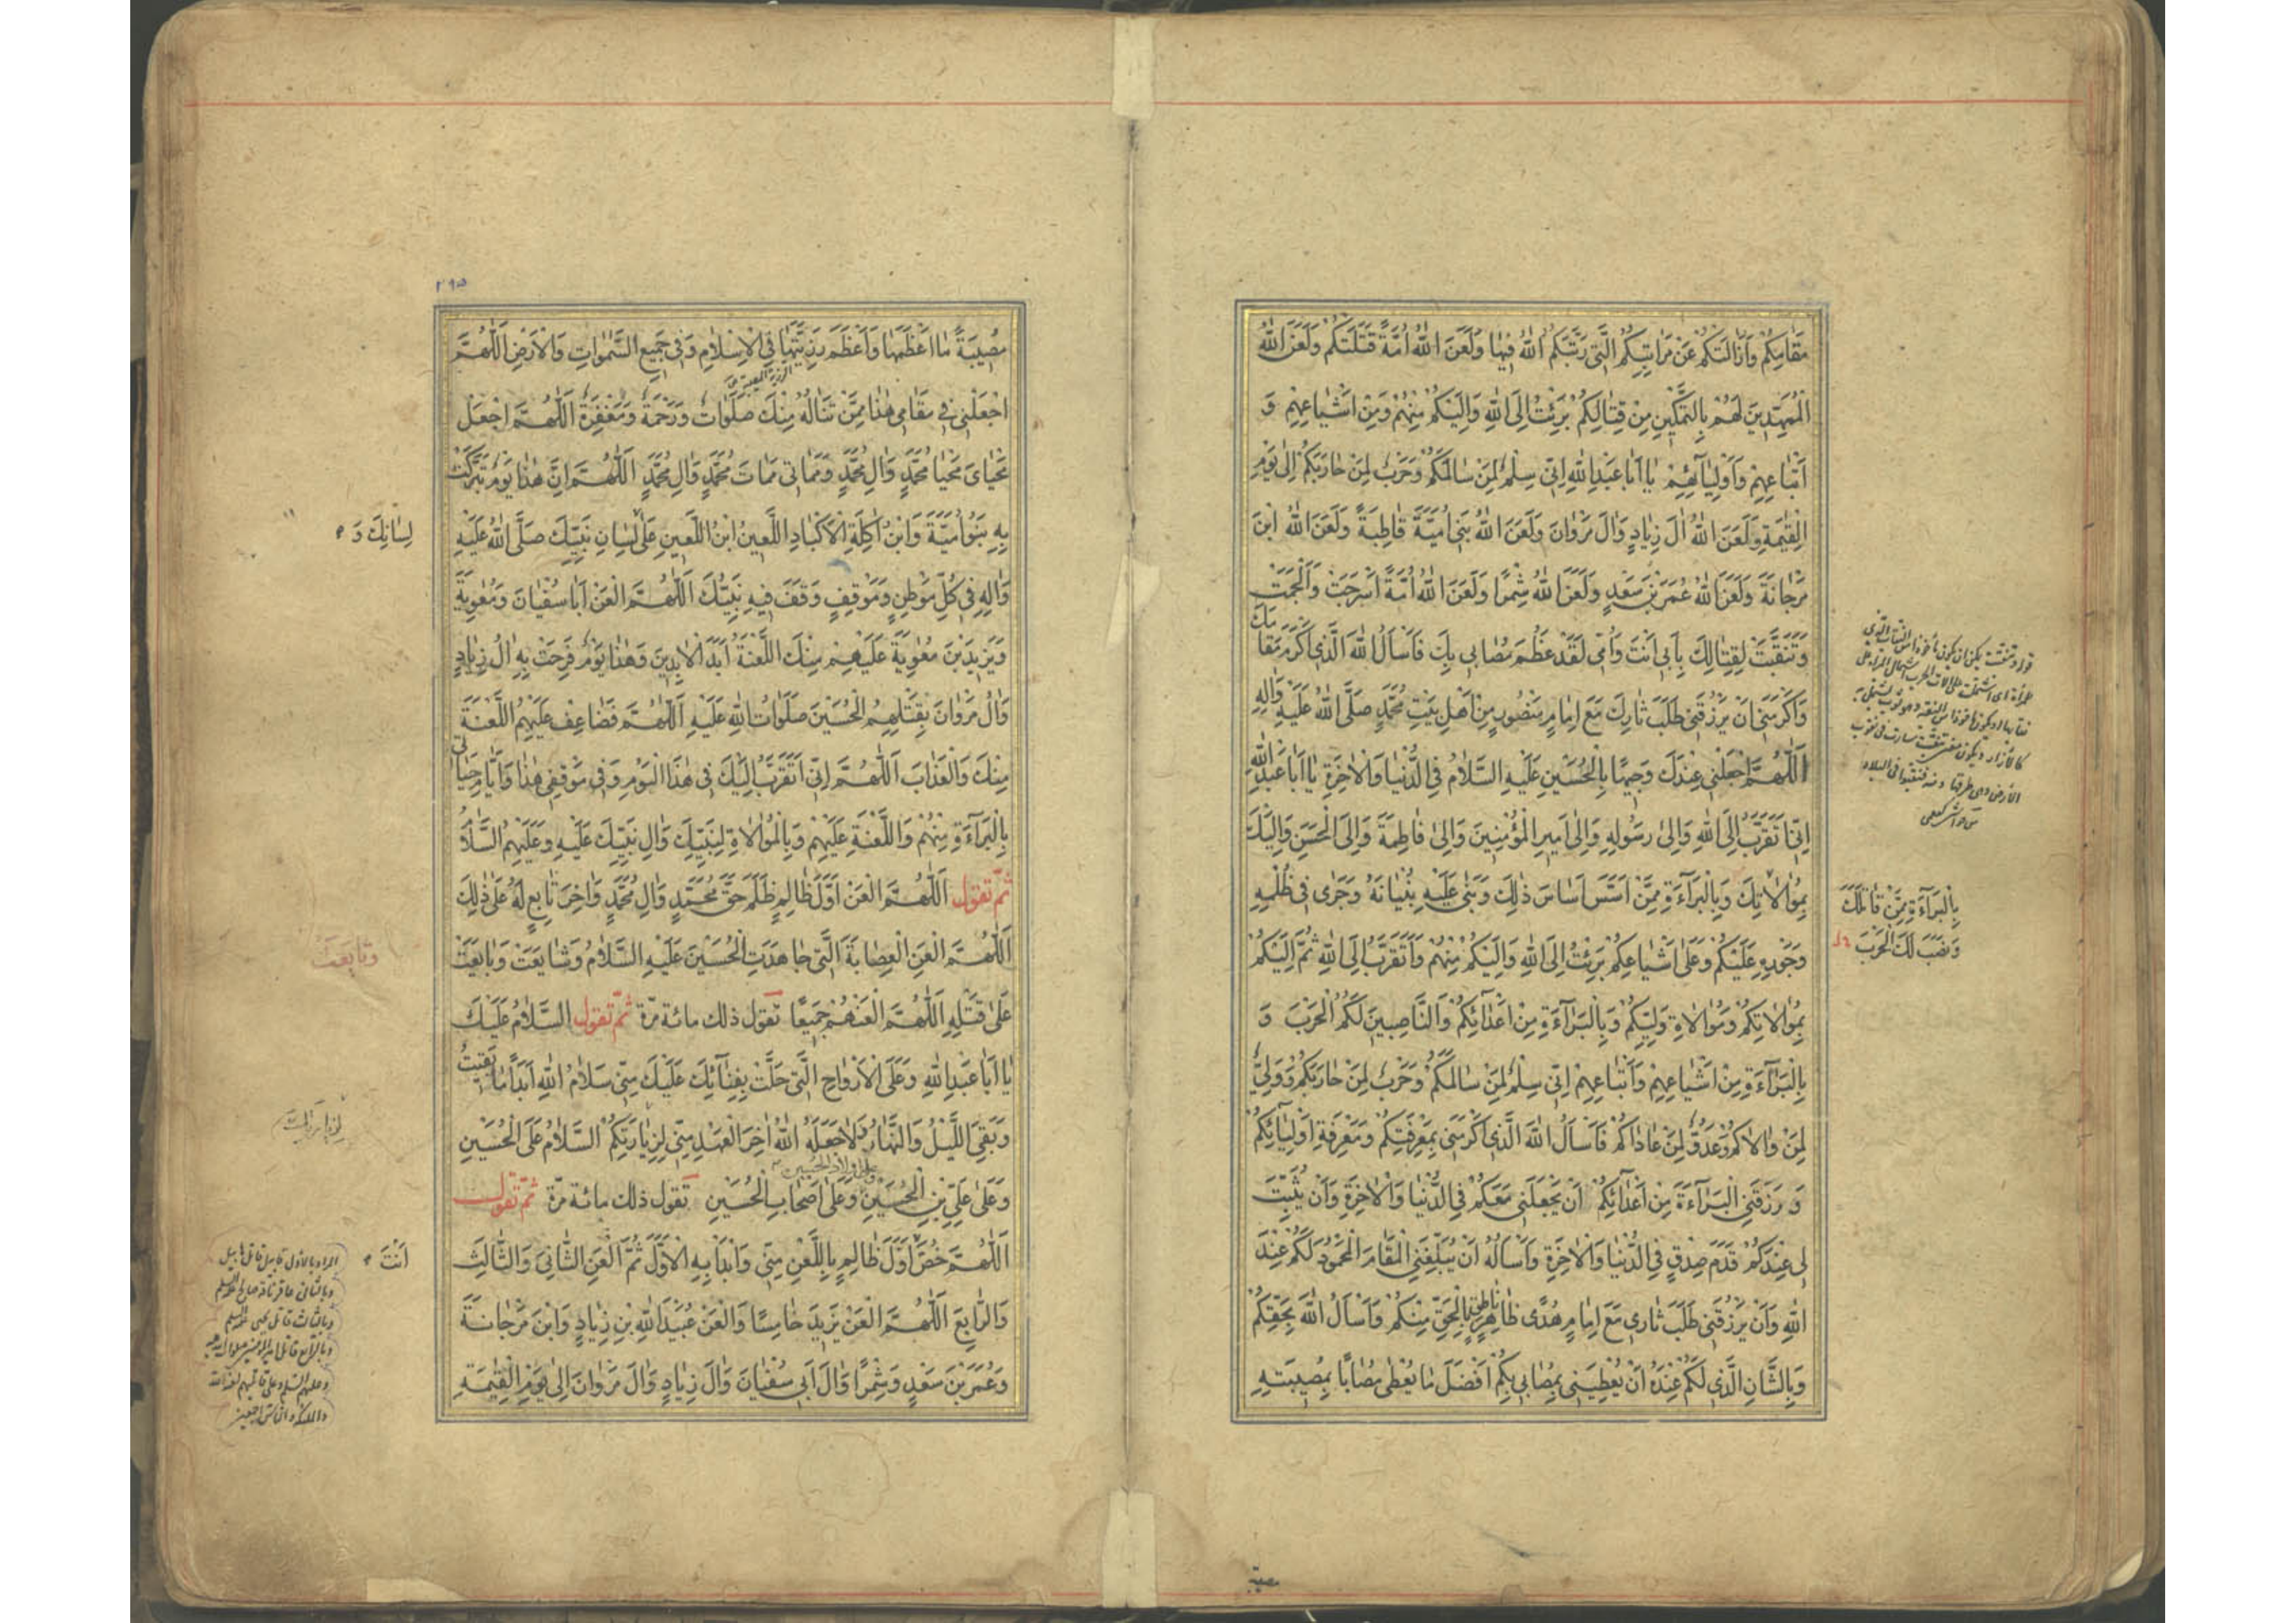 مَقامِكُمْ وَاَزالَتْكُمْ عَنْ مَراتِبِكُمُ الَّتي رَتَّبَكُمُ اللهُ فيها وَلَعَنَ اللهُ اُمَّةً قَتَلَتْكُمْ وَلَعَنَ اللهُ
الْمُمَهِّدينَ لَهُمْ بِالتَّمْكينِ مِنْ قِتالِكُمْ بَرِئْتُ اِلَى اللهِ وَاِلَيْكُمْ مِنْهُمْ وَمِنْ اَشْياعِهِمْ وَ
اَتْباعِهِمْ وَاَوْلِيآئِهِمْ يا اَبا عَبْدِ اللهِ اِنّي سِلْمٌ لِمَنْ سالَمَكُمْ وَحَرْبٌ لِمَنْ حارَبَكُمْ اِلى يَوْمِ
الْقِيٰمَةِ وَلَعَنَ اللهُ الَ زِيادٍ وَالَ مَرْوانَ وَلَعَنَ اللهُ بَني اُمَيَّةَ قاطِبَةً وَلَعَنَ اللهُ ابْنَ
مَرْجانَةَ وَلَعَنَ اللهُ عُمَرَ بْنَ سَعْدٍ وَلَعَنَ اللهُ شِمْرًا وَلَعَنَ اللهُ اُمَّةً اَسْرَجَتْ وَاَلْجَمَتْ
وَتَنَقَّبَتْ لِقِتالِكَ بِاَبي اَنْتَ وَاُمّي لَقَدْ عَظُمَ مُصابي بِكَ فَاَسْاَلُ اللهَ الَّذي اَكْرَمَ مَقامَكَ
وَاَكْرَمَني اَنْ يَرْزُقَني طَلَبَ ثارِكَ مَعَ اِمامٍ مَنْصُورٍ مِنْ اَهْلِ بَيْتِ مُحَمَّدٍ صَلَّى اللهُ عَلَيْهِ وَالِهِ
اَللّٰهُمَّ اجْعَلْني عِنْدَكَ وَجيهًا بِالْحُسَيْنِ عَلَيْهِ السَّلامُ فِي الدُّنْيا وَالْاٰخِرَةِ يا اَبا عَبْدِ اللهِ
اِنّي اَتَقَرَّبُ اِلَى اللهِ وَاِلى رَسُولِهِ وَاِلى اَميرِ الْمُؤْمِنينَ وَاِلى فاطِمَةَ وَاِلَى الْحَسَنِ وَاِلَيْكَ
بِمُوالاتِكَ وَبِالْبَرآءَةِ مِمَّنْ اَسَّسَ اَساسَ ذٰلِكَ وَبَنى عَلَيْهِ بُنْيانَهُ وَجَرى في ظُلْمِهِ
وَجَوْرِهِ عَلَيْكُمْ وَعَلى اَشْياعِكُمْ بَرِئْتُ اِلَى اللهِ وَاِلَيْكُمْ مِنْهُمْ وَاَتَقَرَّبُ اِلَى اللهِ ثُمَّ اِلَيْكُمْ
بِمُوالاتِكُمْ وَمُوالاةِ وَلِيِّكُمْ وَبِالْبَرآءَةِ مِنْ اَعْدآئِكُمْ وَالنّاصِبينَ لَكُمُ الْحَرْبَ وَ
بِالْبَرآءَةِ مِنْ اَشْياعِهِمْ وَاَتْباعِهِمْ اِنّي سِلْمٌ لِمَنْ سالَمَكُمْ وَحَرْبٌ لِمَنْ حارَبَكُمْ وَوَلِيٌّ
لِمَنْ والاكُمْ وَعَدُوٌّ لِمَنْ عاداكُمْ فَاَسْاَلُ اللهَ الَّذي اَكْرَمَني بِمَعْرِفَتِكُمْ وَمَعْرِفَةِ اَوْلِيآئِكُمْ
وَ رَزَقَنِي الْبَرآءَةَ مِنْ اَعْدآئِكُمْ اَنْ يَجْعَلَني مَعَكُمْ فِي الدُّنْيا وَالْاٰخِرَةِ وَاَنْ يُثَبِّتَ
لي عِنْدَكُمْ قَدَمَ صِدْقٍ فِي الدُّنْيا وَالْاٰخِرَةِ وَاَسْاَلُهُ اَنْ يُبَلِّغَنِي الْمَقامَ الْمَحْمُودَ لَكُمْ عِنْدَ
اللهِ وَاَنْ يَرْزُقَني طَلَبَ ثاري مَعَ اِمامٍ هُدًى ظاهِرٍ ناطِقٍ بِالْحَقِّ مِنْكُمْ وَاَسْاَلُ اللهَ بِحَقِّكُمْ
وَبِالشَّانِ الَّذي لَكُمْ عِنْدَهُ اَنْ يُعْطِيَني بِمُصابي بِكُمْ اَفْضَلَ ما يُعْطي مُصابًا بِمُصيبَتِهِ
بِالْبَرآءَةِ مِمَّنْ قاتَلَكَ
وَنَصَبَ لَكَ الْحَرْبَ
مصيبة
٢٩٥
مُصيبَةً ما اَعْظَمَها وَاَعْظَمَ رَزِيَّتَها فِي الْاِسْلامِ وَفي جَميعِ السَّمٰواتِ وَالْاَرْضِ اَللّٰهُمَّ
اجْعَلْني في مَقامي هٰذا مِمَّنْ تَنالُهُ مِنْكَ صَلَواتٌ وَرَحْمَةٌ وَمَغْفِرَةٌ اَللّٰهُمَّ اجْعَلْ
مَحْيايَ مَحْيا مُحَمَّدٍ وَالِ مُحَمَّدٍ وَمَماتي مَماتَ مُحَمَّدٍ وَالِ مُحَمَّدٍ اَللّٰهُمَّ اِنَّ هٰذا يَوْمٌ تَبَرَّكَتْ
بِهِ بَنُو اُمَيَّةَ وَابْنُ اٰكِلَةِ الْاَكْبادِ اللَّعينُ ابْنُ اللَّعينِ عَلى لِسانِ نَبِيِّكَ صَلَّى اللهُ عَلَيْهِ
وَالِهِ في كُلِّ مَوْطِنٍ وَمَوْقِفٍ وَقَفَ فيهِ نَبِيُّكَ اَللّٰهُمَّ الْعَنْ اَبا سُفْيانَ وَمُعٰوِيَةَ
وَيَزيدَ بْنَ مُعٰوِيَةَ عَلَيْهِمْ مِنْكَ اللَّعْنَةُ اَبَدَ الْاٰبِدينَ وَهٰذا يَوْمٌ فَرِحَتْ بِهِ الُ زِيادٍ
وَالُ مَرْوانَ بِقَتْلِهِمُ الْحُسَيْنَ صَلَواتُ اللهِ عَلَيْهِ اَللّٰهُمَّ فَضاعِفْ عَلَيْهِمُ اللَّعْنَةَ
مِنْكَ وَالْعَذابَ اَللّٰهُمَّ اِنّي اَتَقَرَّبُ اِلَيْكَ في هٰذَا الْيَوْمِ وَفي مَوْقِفي هٰذا وَاَيّامِ حَياتي
بِالْبَرآءَةِ مِنْهُمْ وَاللَّعْنَةِ عَلَيْهِمْ وَبِالْمُوالاةِ لِنَبِيِّكَ وَالِ نَبِيِّكَ عَلَيْهِ وَعَلَيْهِمُ السَّلامُ
ثمّ تقول اَللّٰهُمَّ الْعَنْ اَوَّلَ ظالِمٍ ظَلَمَ حَقَّ مُحَمَّدٍ وَالِ مُحَمَّدٍ وَاٰخِرَ تابِعٍ لَهُ عَلى ذٰلِكَ
اَللّٰهُمَّ الْعَنِ الْعِصابَةَ الَّتي جاهَدَتِ الْحُسَيْنَ عَلَيْهِ السَّلامُ وَشايَعَتْ وَبايَعَتْ
عَلى قَتْلِهِ اَللّٰهُمَّ الْعَنْهُمْ جَميعًا تقول ذلك مائة مرّة ثمّ تقول السَّلامُ عَلَيْكَ
يا اَبا عَبْدِ اللهِ وَعَلَى الْاَرْواحِ الَّتي حَلَّتْ بِفِنآئِكَ عَلَيْكَ مِنّي سَلامُ اللهِ اَبَدًا ما بَقيتُ
وَبَقِيَ اللَّيْلُ وَالنَّهارُ وَلا جَعَلَهُ اللهُ اٰخِرَ الْعَهْدِ مِنّي لِزِيارَتِكُمْ السَّلامُ عَلَى الْحُسَيْنِ
وعلى اولاد الحسين
وَعَلى عَلِيِّ بْنِ الْحُسَيْنِ وَعَلى اَصْحابِ الْحُسَيْنِ تقول ذلك مائة مرّة ثمّ تقول
اَللّٰهُمَّ خُصَّ اَوَّلَ ظالِمٍ بِاللَّعْنِ مِنّي وَابْدَاْ بِهِ الْاَوَّلَ ثُمَّ الْعَنِ الثّانِيَ وَالثّالِثَ
وَالرّابِعَ اَللّٰهُمَّ الْعَنْ يَزيدَ خامِسًا وَالْعَنْ عُبَيْدَ اللهِ بْنِ زِيادٍ وَابْنَ مَرْجانَةَ
وَعُمَرَ بْنَ سَعْدٍ وَشِمْرًا وَالَ اَبي سُفْيانَ وَالَ زِيادٍ وَالَ مَرْوانَ اِلى يَوْمِ الْقِيٰمَةِ
لِسانِكَ وَ
وتابعت
اَنْتَ
المراد بالاول قابيل قاتل هابيل
وبالثاني عاقر ناقة صالح
وبالثالث قاتل يحيى